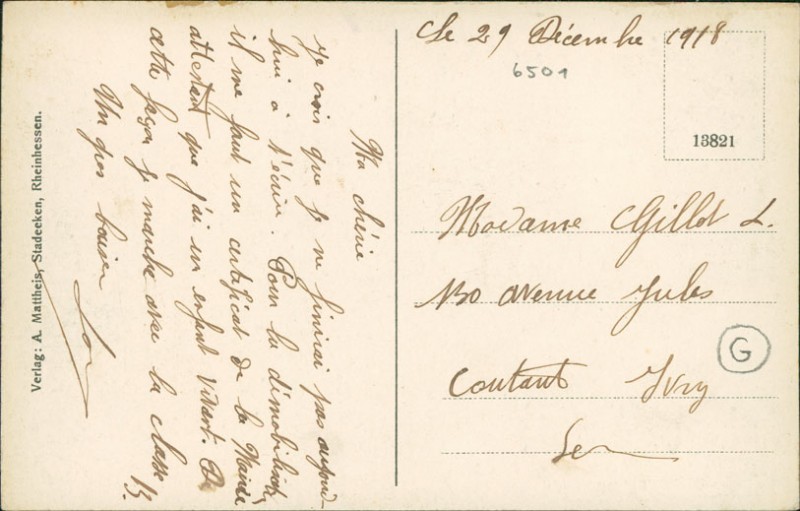 Le 29 Décembre 1918
6501
13821
Madame Gillot L.
130 avenue Jules
Coutant Ivry
Seine
G
Ma chérie
Je crois que je ne finirai pas aujourd-
hui à t'écrire. Pour la démobilisation
il me faut un certificat de la Mairie
attestant que j'ai un enfant vivant. De
cette façon je marche avec la classe 15.
Un gros baiser
Verlag: A. Mattheis, Stadecken, Rheinhessen.